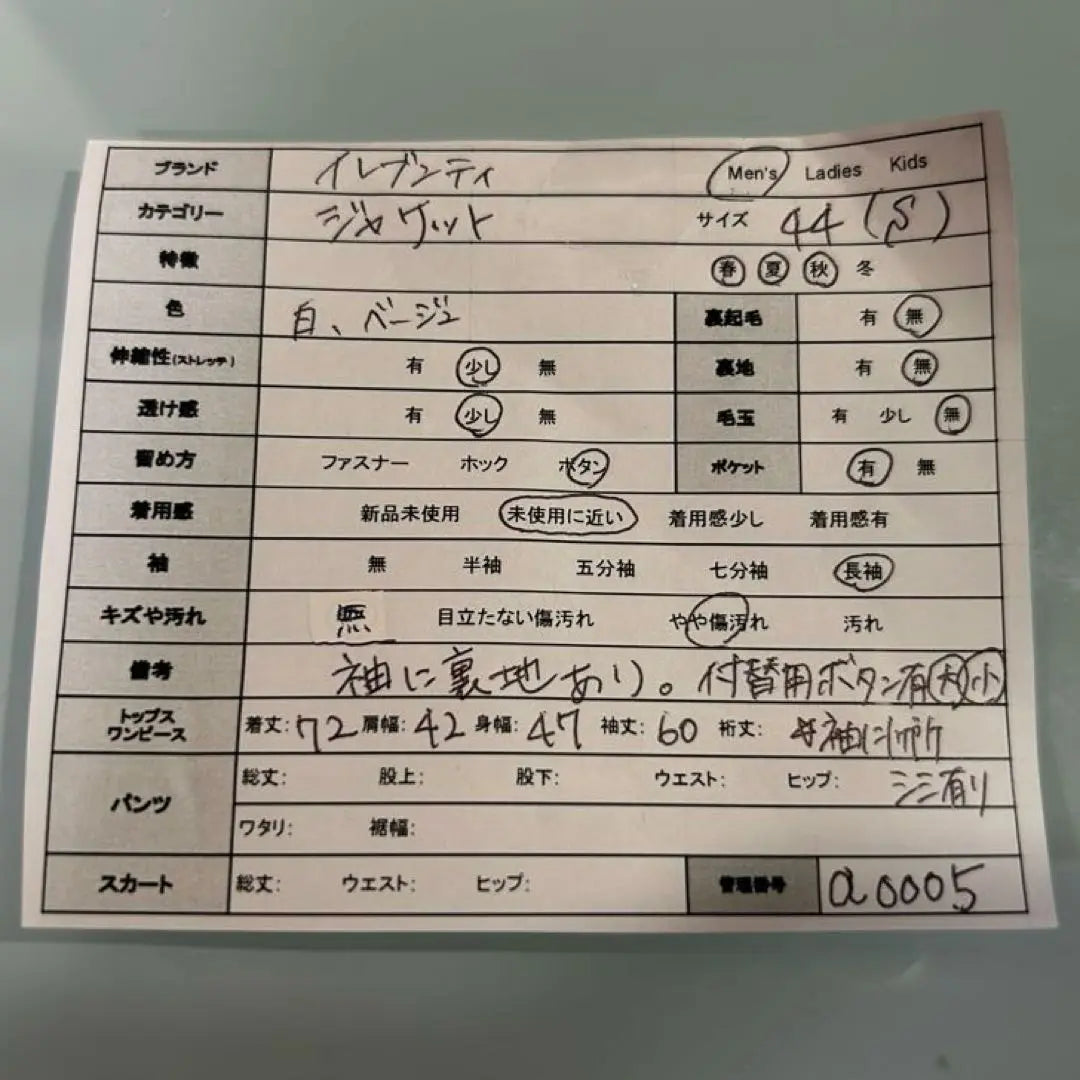 ブランド イレブンティ Men's Ladies Kids
カテゴリー ジャケット サイズ 44(S)
特徴 春 夏 秋 冬
色 白、ベージュ 裏起毛 有 無
伸縮性(ストレッチ) 有 少し 無 裏地 有 無
透け感 有 少し 無 毛玉 有 少し 無
留め方 ファスナー ホック ボタン ポケット 有 無
着用感 新品未使用 未使用に近い 着用感少し 着用感有
袖 無 半袖 五分袖 七分袖 長袖
キズや汚れ 無 目立たない傷汚れ やや傷汚れ 汚れ
備考 袖に裏地あり。付替用ボタン有大小
トップス
ワンピース 着丈:72 肩幅:42 身幅:47 袖丈:60 裄丈: 袖に1か所
シミ有り
パンツ 総丈: 股上: 股下: ウエスト: ヒップ:
ワタリ: 裾幅:
スカート 総丈: ウエスト: ヒップ: 管理番号 a0005